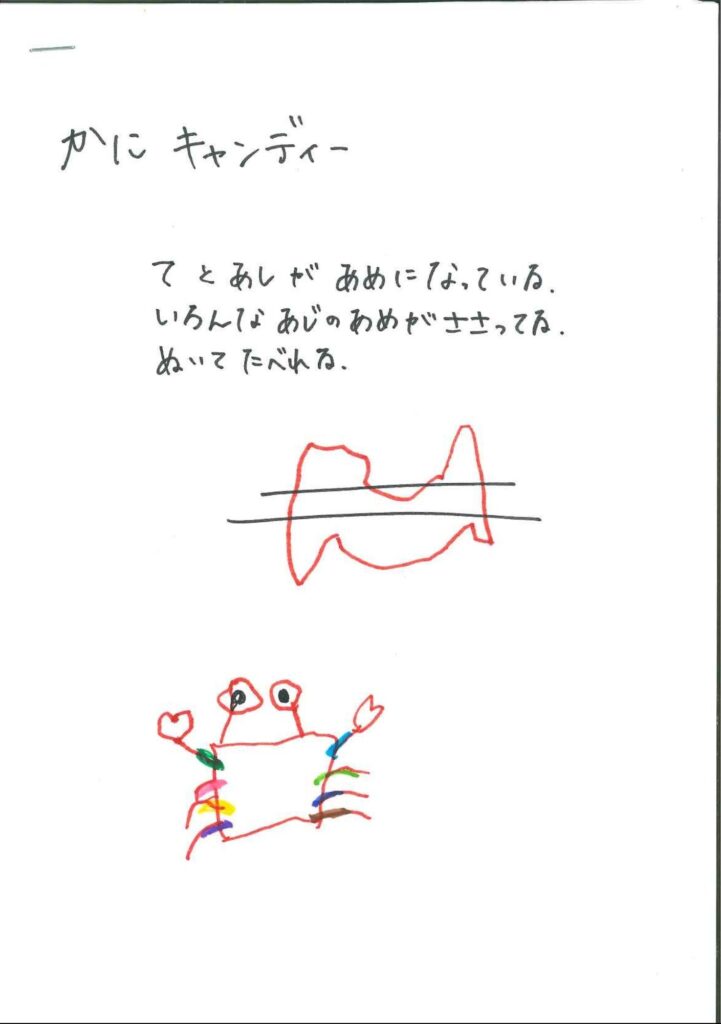 かに キャンディー
て と あし が あめになっている.
いろんな あじの あめが ささってる.
ぬいて たべれる.